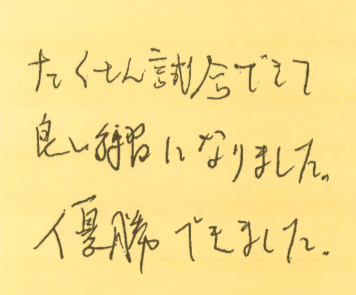 たくさん試合できて
良い練習になりました。
優勝できました。